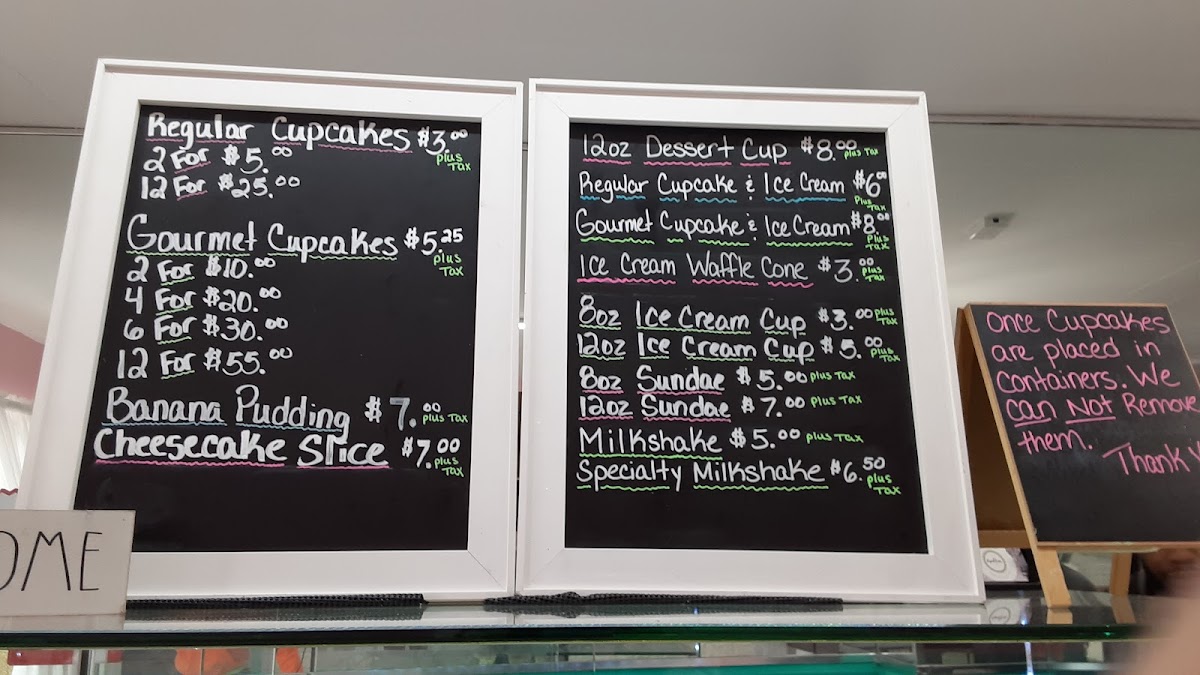 Regular Cupcakes $3.00 plus Tax
2 For $5.00
12 For $25.00
Gourmet Cupcakes $5.25 plus Tax
2 For $10.00
4 For $20.00
6 For $30.00
12 For $55.00
Banana Pudding $7.00 plus Tax
Cheesecake Slice $7.00 plus Tax
12oz Dessert Cup $8.00 plus Tax
Regular Cupcake & Ice Cream $6.00 Plus Tax
Gourmet Cupcake & Ice Cream $8.00 Plus Tax
Ice Cream Waffle Cone $3.00 plus Tax
8oz Ice Cream Cup $3.00 plus Tax
12oz Ice Cream Cup $5.00 plus Tax
8oz Sundae $5.00 plus Tax
12oz Sundae $7.00 plus Tax
Milkshake $5.00 plus Tax
Specialty Milkshake $6.50 plus Tax
Once Cupcakes
are placed in
containers. We
can NOT Remove
them.
Thank
OME